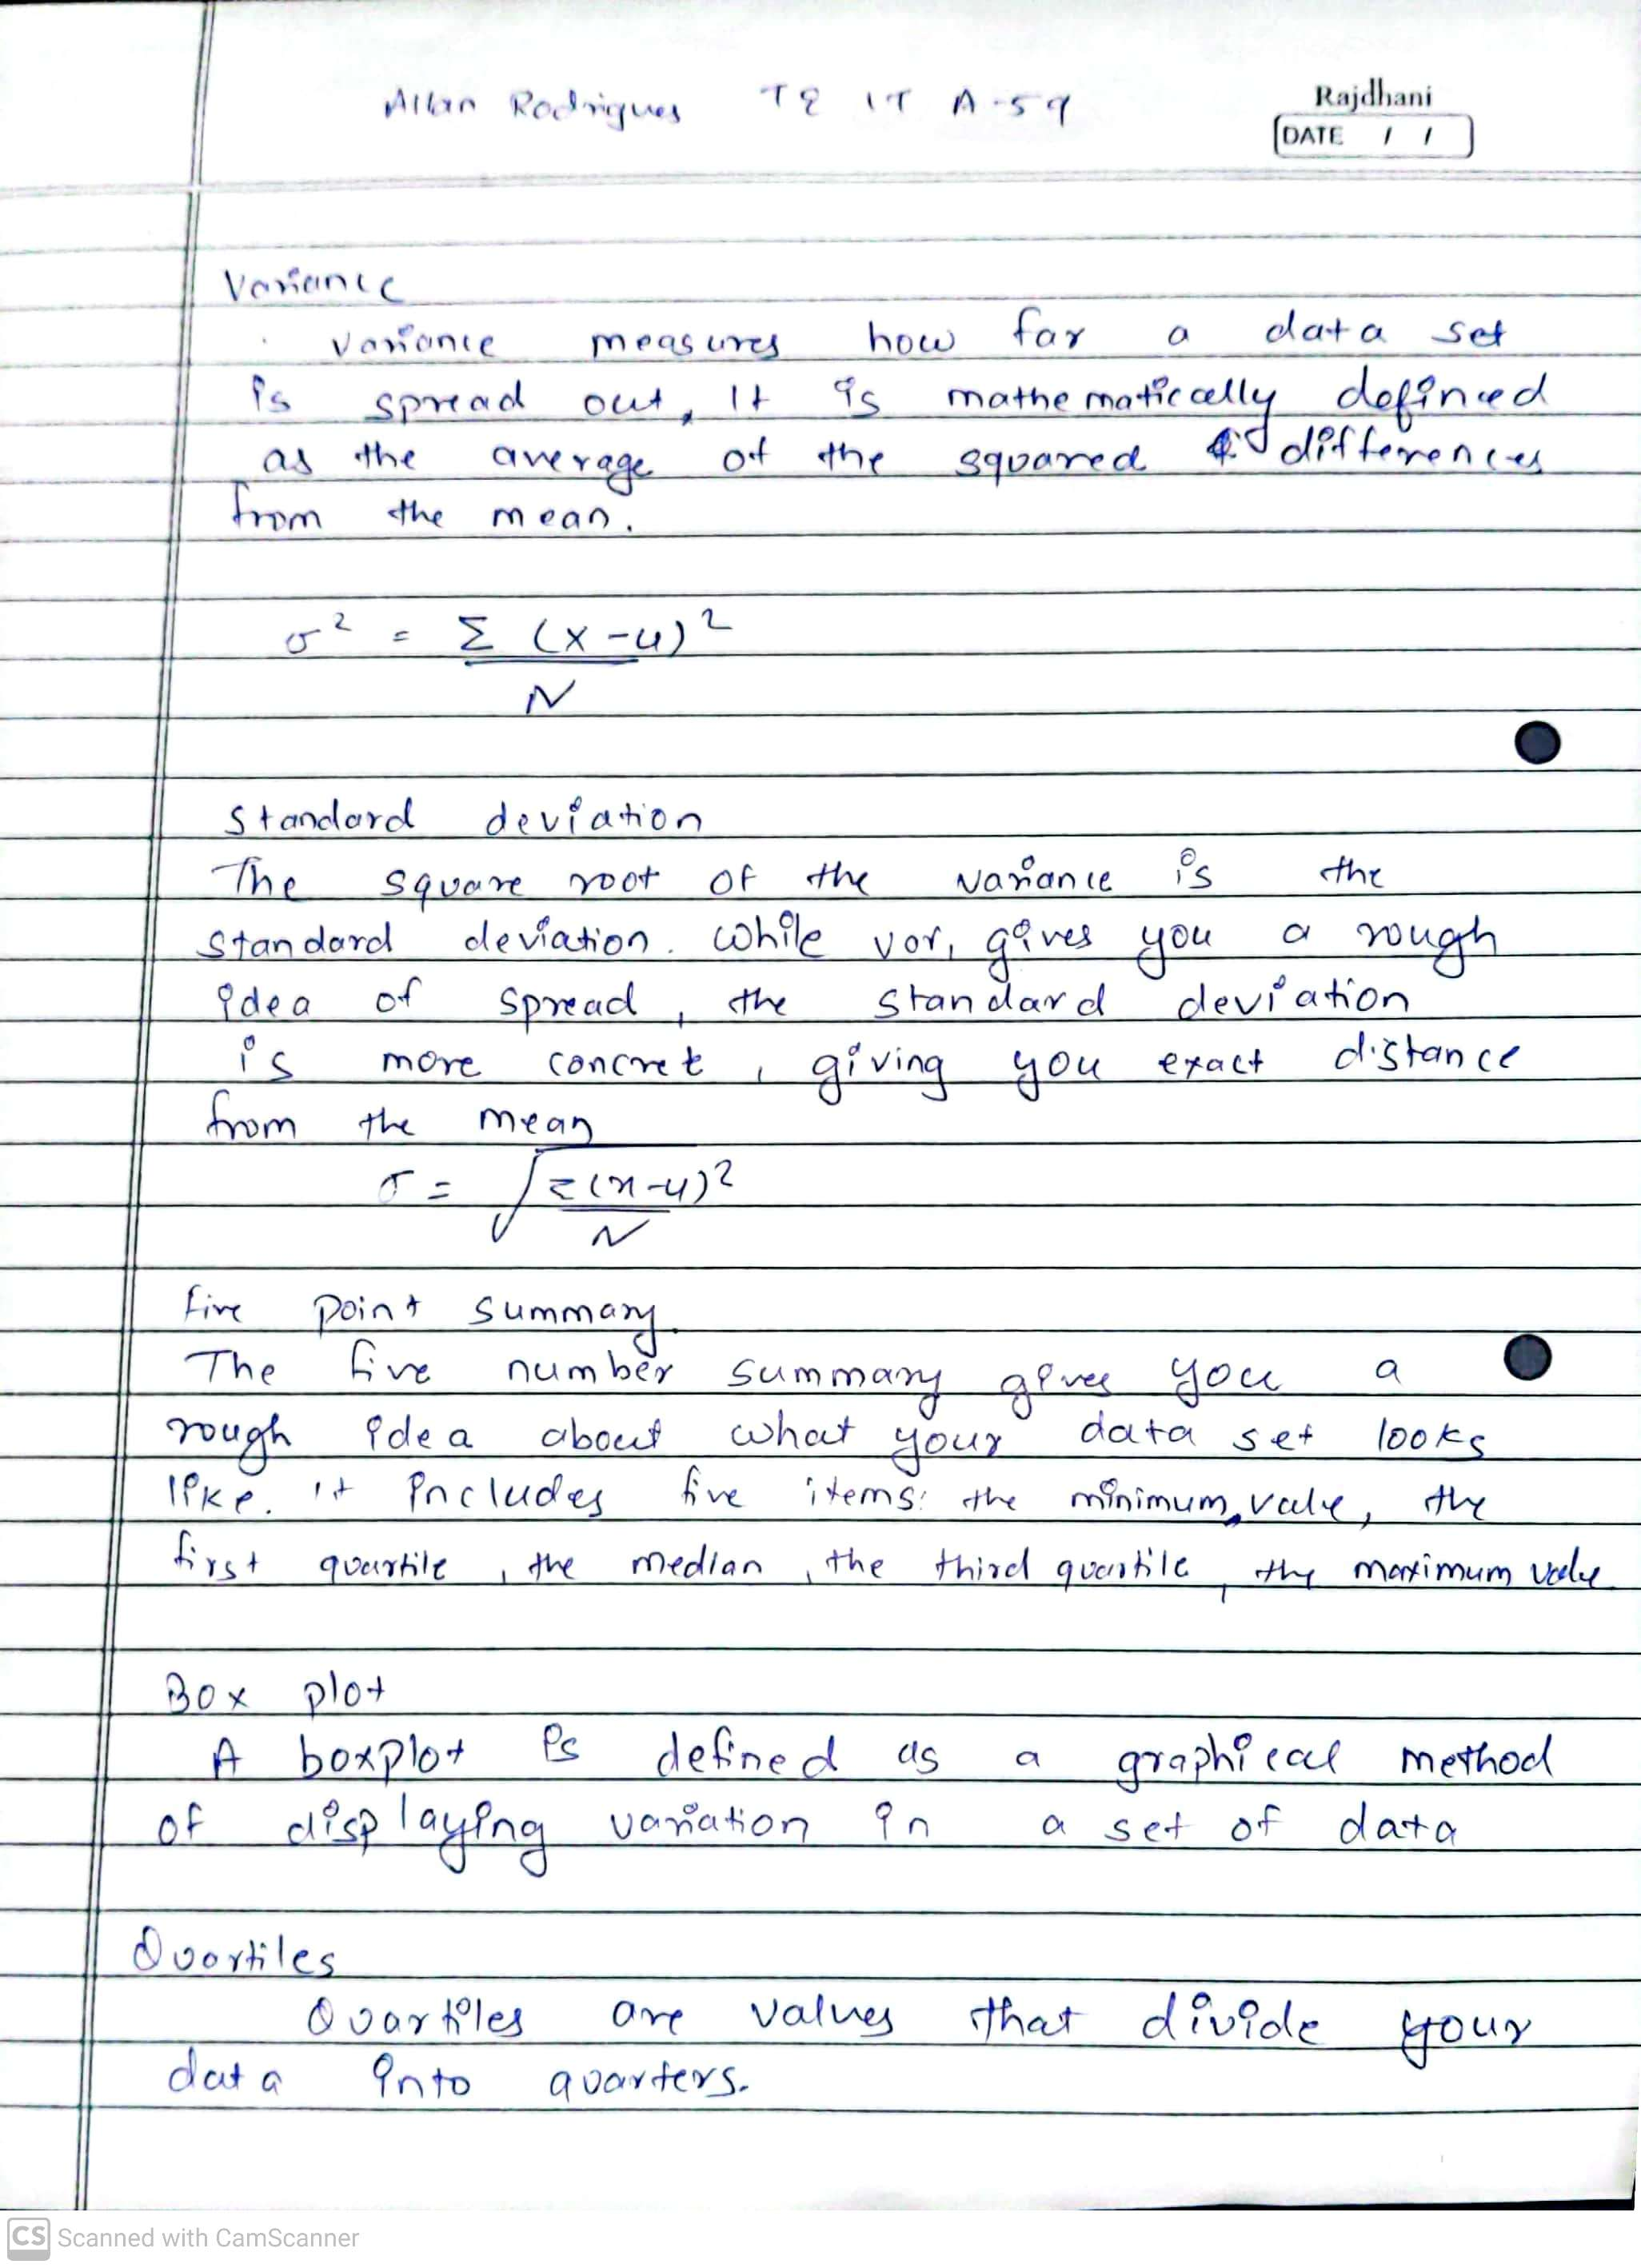 Allan Rodrigues TE IT A-59
Rajdhani
DATE / /
Variance
variance measures how far a data set
is spread out, It is mathematically defined
as the average of the squared differences
from the mean.
σ² = Σ (x-u)²
N
Standard deviation
The square root of the variance is the
standard deviation. While var, gives you a rough
idea of spread, the standard deviation
is more concret, giving you exact distance
from the mean
σ = √Σ(x-u)²
N
five point summary.
The five number summary gives you a
rough idea about what your data set looks
like. it includes five items: the minimum value, the
first quartile, the median, the third quartile, the maximum value
Box plot
A boxplot is defined as a graphical method
of displaying variation in a set of data
Quartiles
Quartiles are values that divide your
data into quarters.
CS Scanned with CamScanner